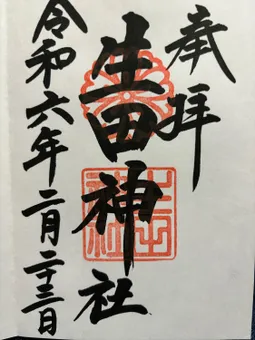 奉拝
生田神社
令和六年二月二十三日